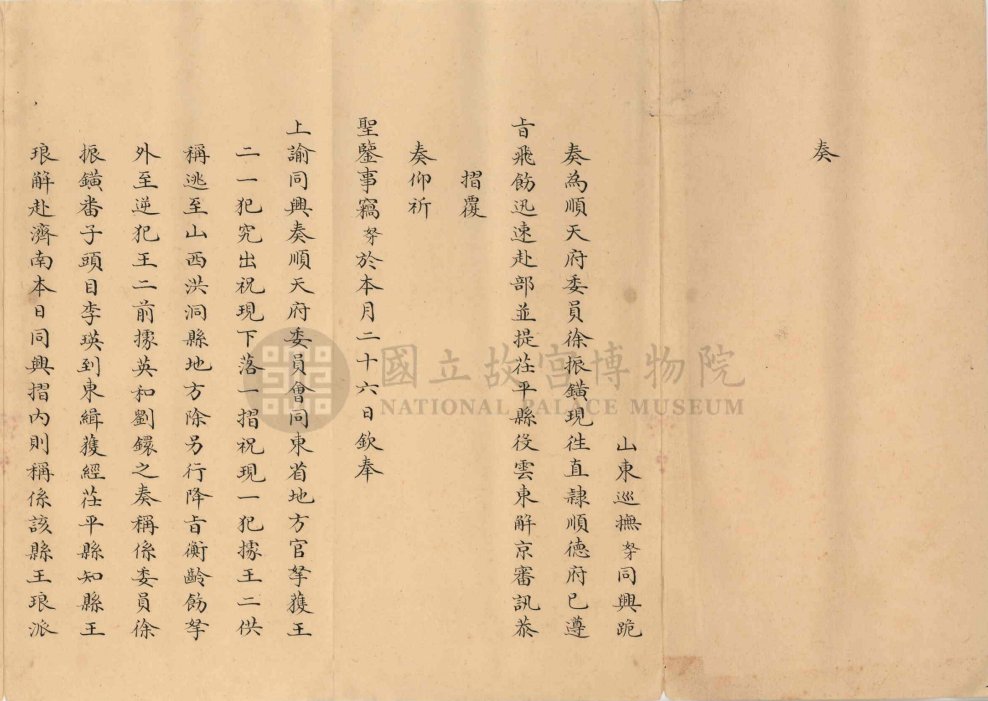 奏
山東巡撫奴才同興跪
奏為順天府委員徐振鐄現往直隸順德府已遵
旨飛飭迅速赴部並提茌平縣役雲東解京審訊恭
摺覆
奏仰祈
聖鑒事竊奴才於本月二十六日欽奉
上諭同興奏順天府委員會同東省地方官拏獲王
二一犯究出祝現下落一摺祝現一犯據王二供
稱逃至山西洪洞縣地方除另行降旨衡齡飭拏
外至逆犯王二前據英和劉鐶之奏稱係委員徐
振鐄番子頭目李瑛到東緝獲經茌平縣知縣王
琅解赴濟南本日同興摺內則稱係該縣王琅派
國立故宮博物院
NATIONAL PALACE MUSEUM